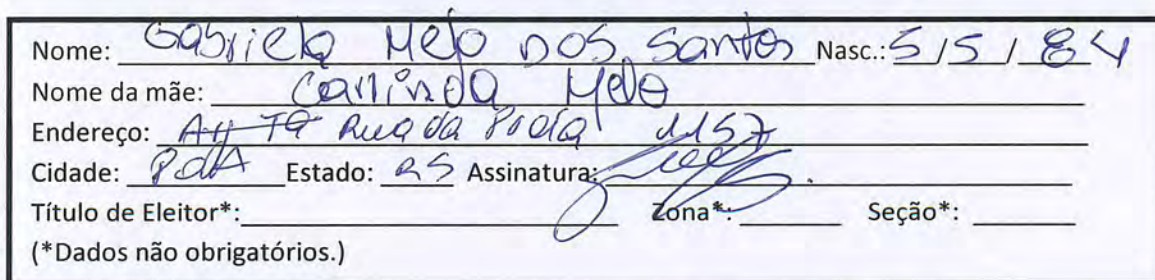 Nome: Gabriela Melo dos Santos Nasc.: 5 / 5 / 84
Nome da mãe: Carlinda Melo
Endereço: Rua da Praia 1157
Cidade: PoA Estado: RS Assinatura:
Título de Eleitor*: Zona*: Seção*:
(*Dados não obrigatórios.)